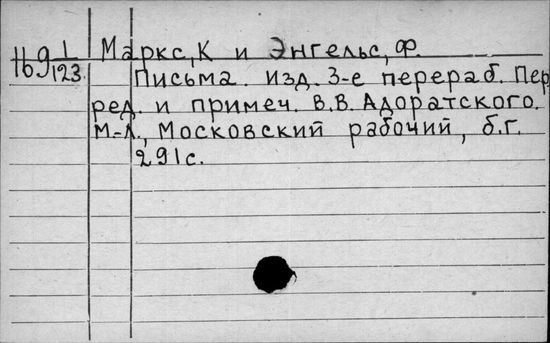 Маркс, К и Энгельс, Ф.
169 1/123. Письма. изд. 3-е перераб. Пер
ред. и примеч. В.В. Адоратского.
М-Л., Московский рабочий, б.г.
291с.